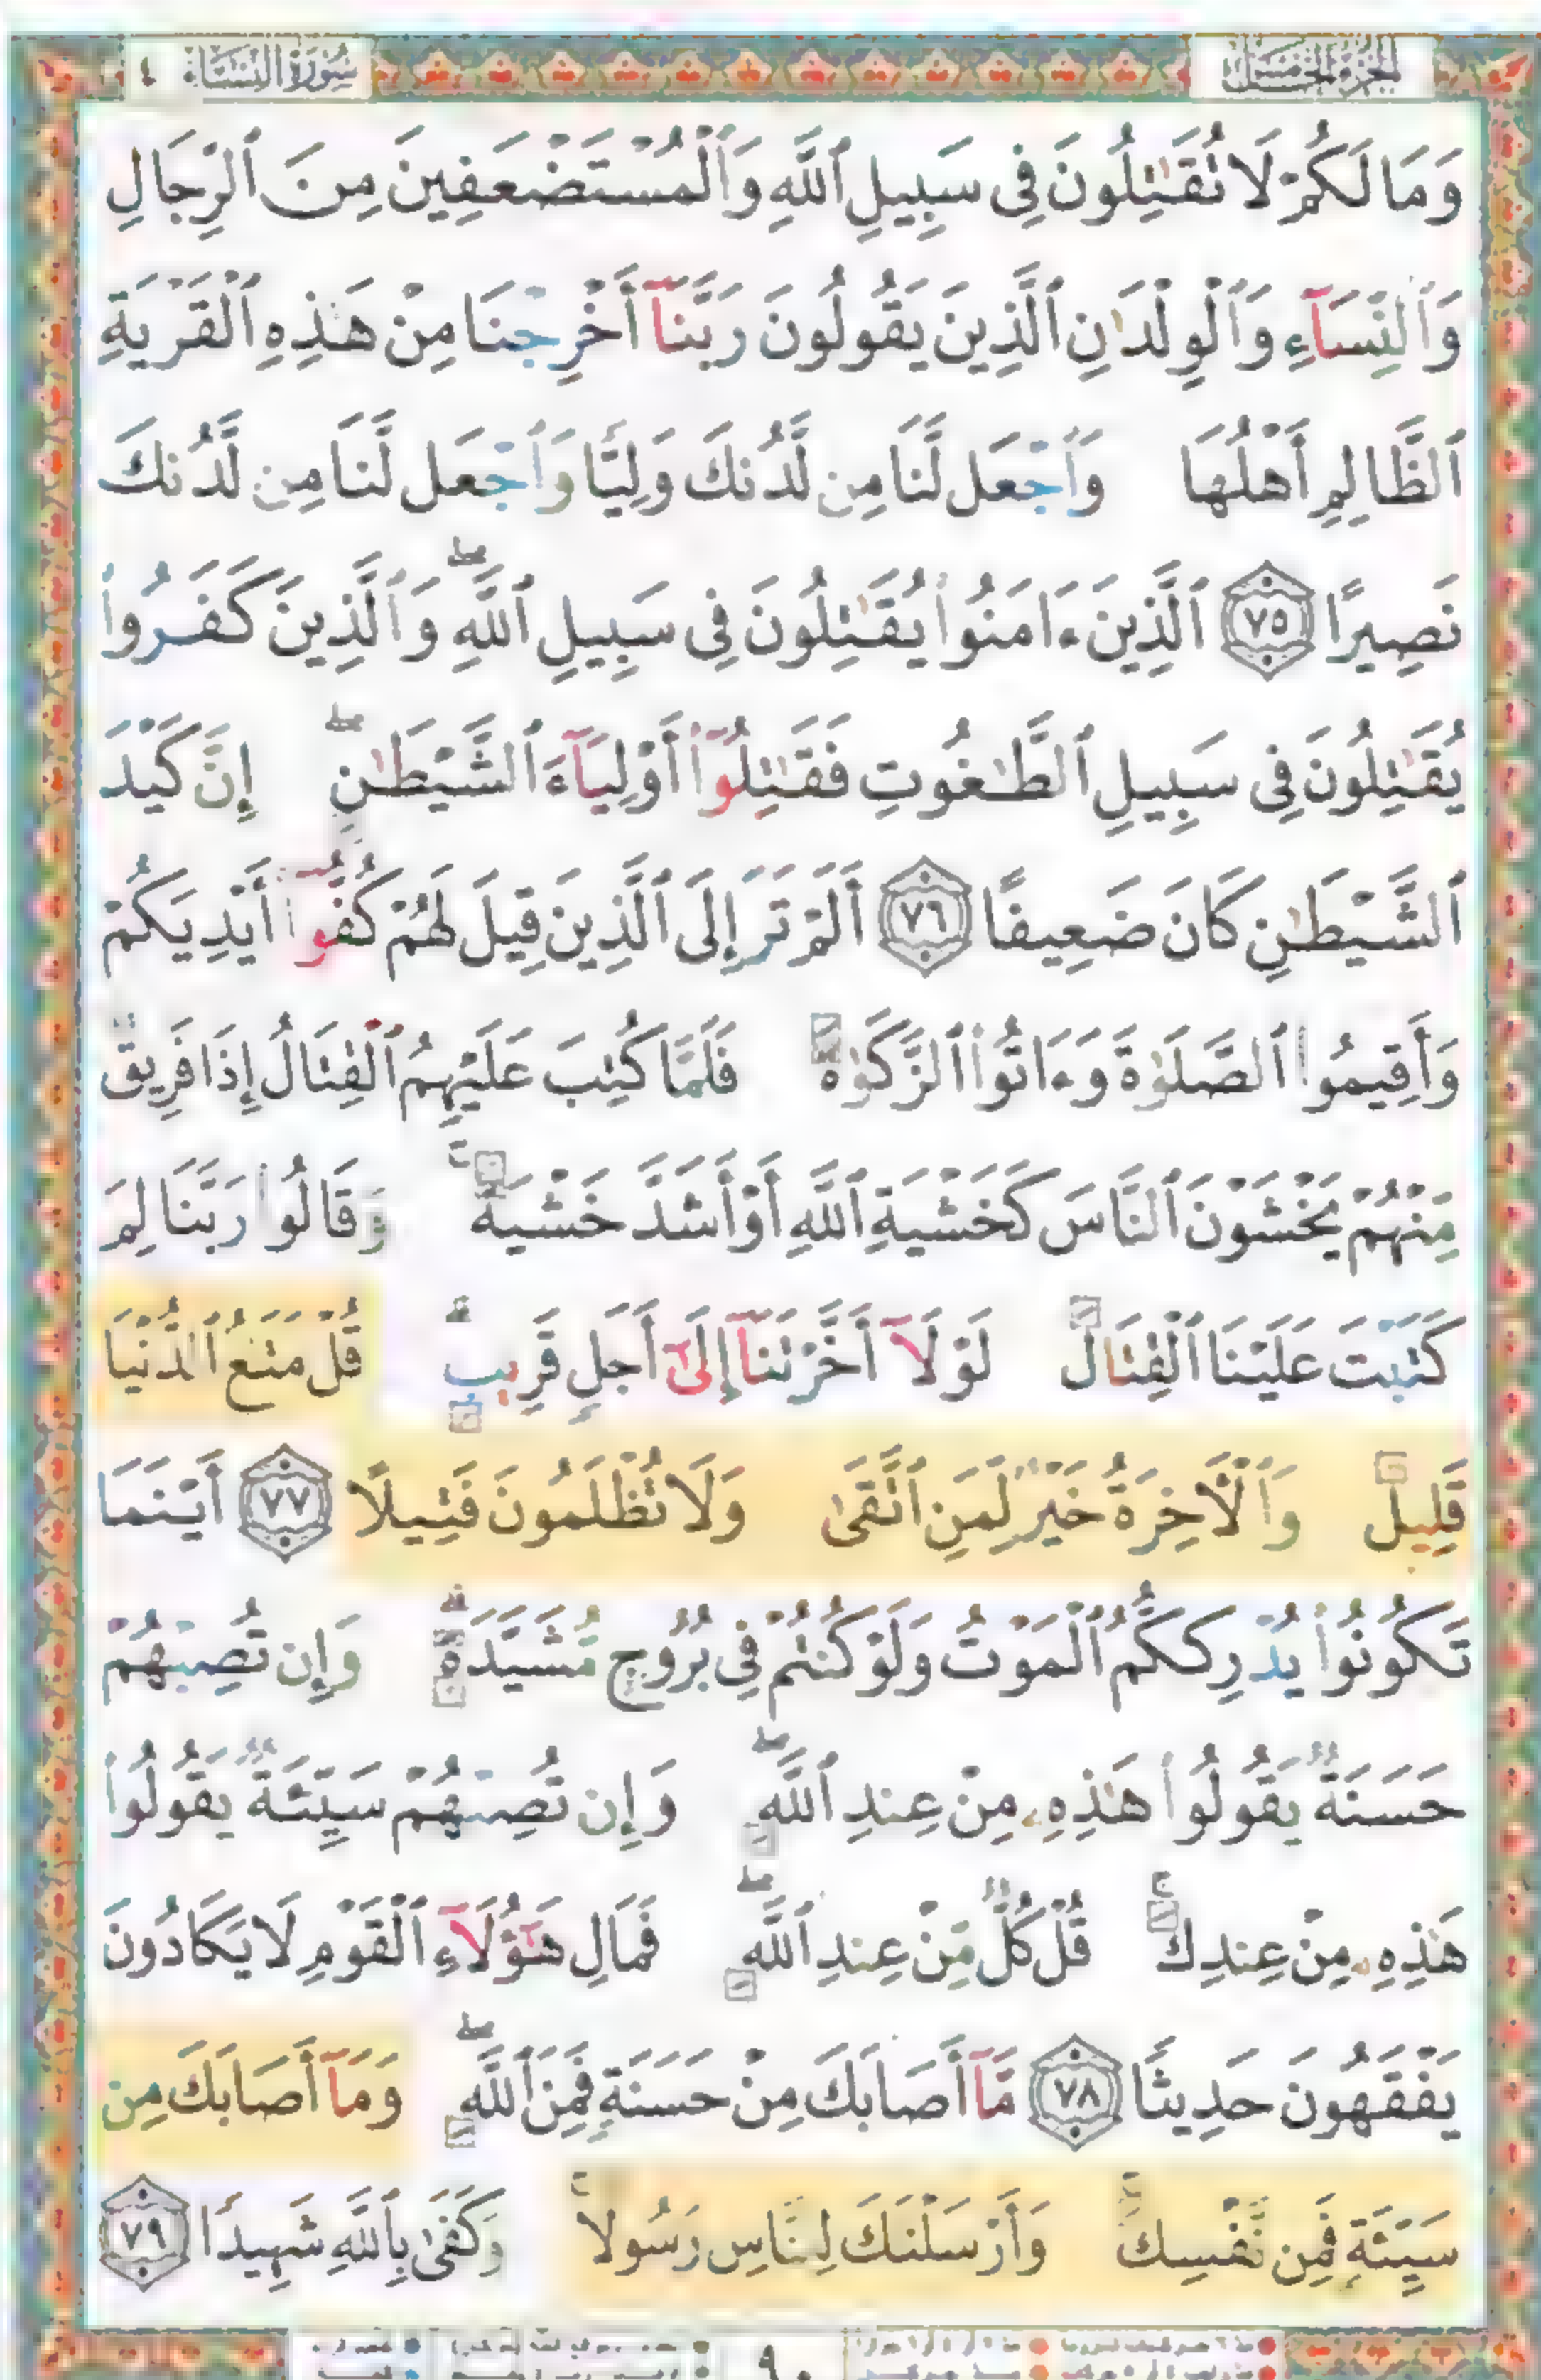 الجزء الخامس
سورة النساء ٤
وَمَا لَكُمْ لَا تُقَٰتِلُونَ فِى سَبِيلِ ٱللَّهِ وَٱلْمُسْتَضْعَفِينَ مِنَ ٱلرِّجَالِ
وَٱلنِّسَآءِ وَٱلْوِلْدَٰنِ ٱلَّذِينَ يَقُولُونَ رَبَّنَآ أَخْرِجْنَا مِنْ هَٰذِهِ ٱلْقَرْيَةِ
ٱلظَّالِمِ أَهْلُهَا وَٱجْعَل لَّنَا مِن لَّدُنكَ وَلِيًّا وَٱجْعَل لَّنَا مِن لَّدُنكَ
نَصِيرًا ٧٥ ٱلَّذِينَ ءَامَنُوا۟ يُقَٰتِلُونَ فِى سَبِيلِ ٱللَّهِ ۖ وَٱلَّذِينَ كَفَرُوا۟
يُقَٰتِلُونَ فِى سَبِيلِ ٱلطَّٰغُوتِ فَقَٰتِلُوٓا۟ أَوْلِيَآءَ ٱلشَّيْطَٰنِ ۖ إِنَّ كَيْدَ
ٱلشَّيْطَٰنِ كَانَ ضَعِيفًا ٧٦ أَلَمْ تَرَ إِلَى ٱلَّذِينَ قِيلَ لَهُمْ كُفُّوٓا۟ أَيْدِيَكُمْ
وَأَقِيمُوا۟ ٱلصَّلَوٰةَ وَءَاتُوا۟ ٱلزَّكَوٰةَ فَلَمَّا كُتِبَ عَلَيْهِمُ ٱلْقِتَالُ إِذَا فَرِيقٌ
مِّنْهُمْ يَخْشَوْنَ ٱلنَّاسَ كَخَشْيَةِ ٱللَّهِ أَوْ أَشَدَّ خَشْيَةً ۚ وَقَالُوا۟ رَبَّنَا لِمَ
كَتَبْتَ عَلَيْنَا ٱلْقِتَالَ لَوْلَآ أَخَّرْتَنَآ إِلَىٰٓ أَجَلٍ قَرِيبٍ ۗ قُلْ مَتَٰعُ ٱلدُّنْيَا
قَلِيلٌ وَٱلْـَٔاخِرَةُ خَيْرٌ لِّمَنِ ٱتَّقَىٰ وَلَا تُظْلَمُونَ فَتِيلًا ٧٧ أَيْنَمَا
تَكُونُوا۟ يُدْرِككُّمُ ٱلْمَوْتُ وَلَوْ كُنتُمْ فِى بُرُوجٍ مُّشَيَّدَةٍ ۗ وَإِن تُصِبْهُمْ
حَسَنَةٌ يَقُولُوا۟ هَٰذِهِۦ مِنْ عِندِ ٱللَّهِ ۖ وَإِن تُصِبْهُمْ سَيِّئَةٌ يَقُولُوا۟
هَٰذِهِۦ مِنْ عِندِكَ ۚ قُلْ كُلٌّ مِّنْ عِندِ ٱللَّهِ ۖ فَمَالِ هَٰٓؤُلَآءِ ٱلْقَوْمِ لَا يَكَادُونَ
يَفْقَهُونَ حَدِيثًا ٧٨ مَّآ أَصَابَكَ مِنْ حَسَنَةٍ فَمِنَ ٱللَّهِ ۖ وَمَآ أَصَابَكَ مِن
سَيِّئَةٍ فَمِن نَّفْسِكَ ۚ وَأَرْسَلْنَٰكَ لِلنَّاسِ رَسُولًا ۚ وَكَفَىٰ بِٱللَّهِ شَهِيدًا ٧٩
٩٠